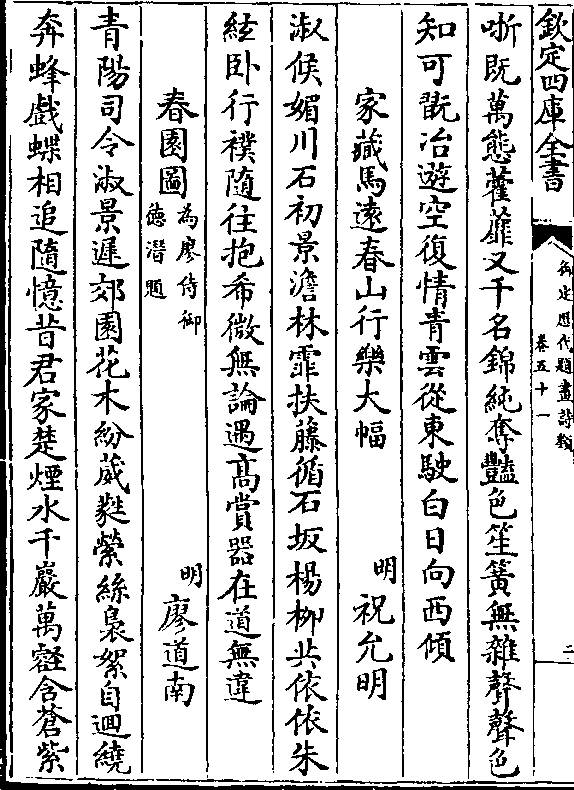 欽定四庫全書
御定歷代題畫詩類
卷五十一
二
哳既萬態藿蘼又千名錦純奪豔色笙簧無雜聲聲色
知可翫冶遊空復情青雲從東駛白日向西傾
家藏馬遠春山行樂大幅
明 祝允明
淑候媚川石初景澹林霏扶藤循石坂楊柳共依依朱
絃卧行襆隨往抱希微無論遇髙賞器在道無違
春園圖 為廖侍御德潛題
明 廖道南
青陽司令淑景遲郊園花木紛葳蕤縈絲裊絮自迴繞
奔蜂戲蝶相追隨憶昔君家楚煙水千巖萬壑含蒼紫